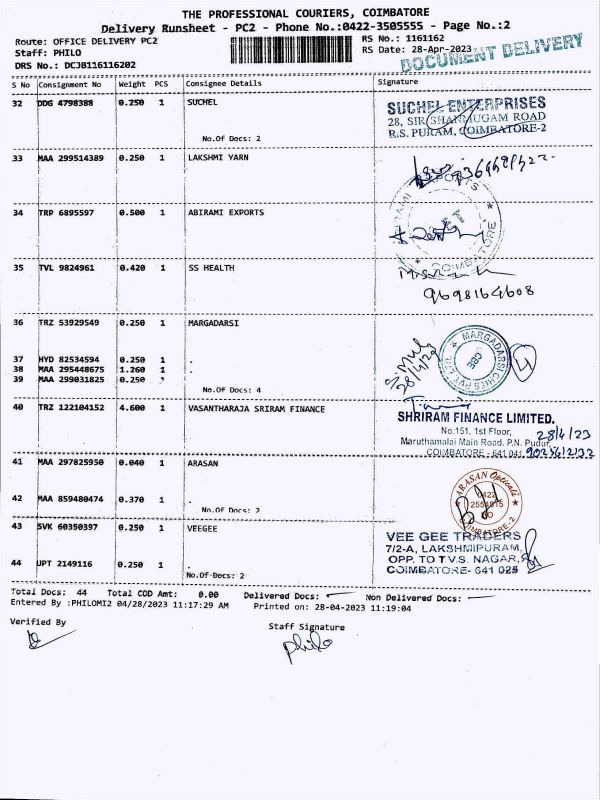 THE PROFESSIONAL COURIERS, COIMBATORE
Delivery Runsheet - PC2 - Phone No.:0422-3505555 - Page No.:2
Route: OFFICE DELIVERY PC2 RS No.: 1161162
Staff: PHILO RS Date: 28-Apr-2023
DRS No.: DCJB116116202 DOCUMENT DELIVERY
S No Consignment No Weight PCS Consignee Details Signature
32 DDG 4798388 0.250 1 SUCHEL
SUCHEL ENTERPRISES
28, SIR SHANMUGAM ROAD
R.S. PURAM, COIMBATORE-2
No.Of Docs: 2
33 MAA 299514389 0.250 1 LAKSHMI YARN
34 TRP 6895597 0.500 1 ABIRAMI EXPORTS
COIMBATORE
35 TVL 9824961 0.420 1 SS HEALTH
9698164608
36 TRZ 53929549 0.250 1 MARGADARSI
MARGADARSI CHITS PVT LTD
CBE
4
28/4/23
37 HYD 82534594 0.250 1 .
38 MAA 295448675 1.260 1 .
39 MAA 299031825 0.250 .
No.Of Docs: 4
40 TRZ 122104152 4.600 1 VASANTHARAJA SRIRAM FINANCE
SHRIRAM FINANCE LIMITED.
No.151, 1st Floor,
Maruthamalai Main Road, P.N. Pudur, 28/4/23
COIMBATORE - 641 041.
41 MAA 297825950 0.040 1 ARASAN
ARASAN Opticals
0422
COIMBATORE-2
42 MAA 859480474 0.370 1 .
No.Of Docs: 2
43 SVK 60350397 0.250 1 VEEGEE
VEE GEE TRADERS
7/2-A, LAKSHMIPURAM,
OPP. TO T.V.S. NAGAR,
COIMBATORE- 641 025
44 UPT 2149116 0.250 1 .
No.Of Docs: 2
Total Docs: 44 Total COD Amt: 0.00 Delivered Docs: Non Delivered Docs:
Entered By :PHILOMI2 04/28/2023 11:17:29 AM Printed on: 28-04-2023 11:19:04
Verified By Staff Signature
philo